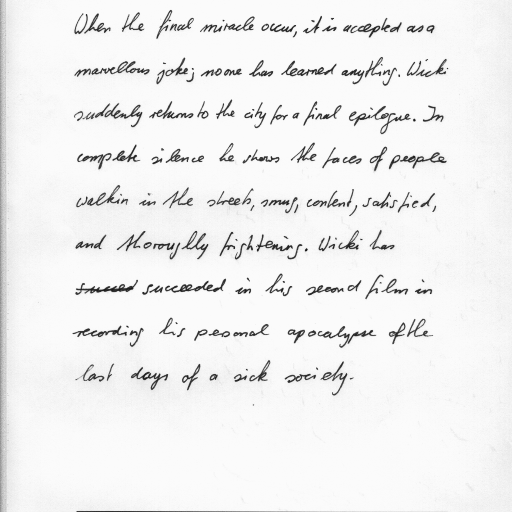 When the final miracle occur, it is accepted as a
marvellous joke; no one has learned anything. Wicki
suddenly returns to the city for a final epilogue. In
complete silence he shows the faces of people
walkin in the streets, smug, content, satisfied,
and thoroughlly frightening. Wicki has
succeeded in his second film in
recording his pesonal apocalypse of the
last days of a sick society.